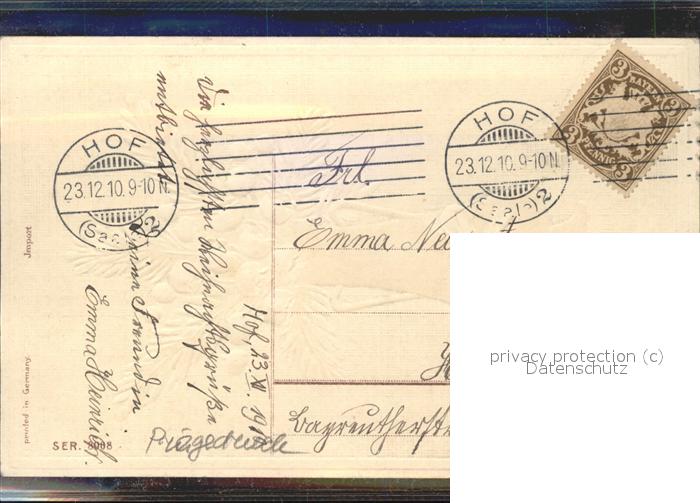 HOF
23.12.10.9-10N.
(Saale) 2
HOF
23.12.10.9-10N.
(Saale) 2
3
3
BAYERN
PFENNIG
3
3
Die herzlichsten Weihnachtsgrüße
entbietet
Deine Freundin
Emma Heinrich.
Hof, 23. XII. 1910
Frl.
Emma
Bayreutherstr
Prägedruck
Import
printed in Germany.
SER. 8008
privacy protection (c)
Datenschutz